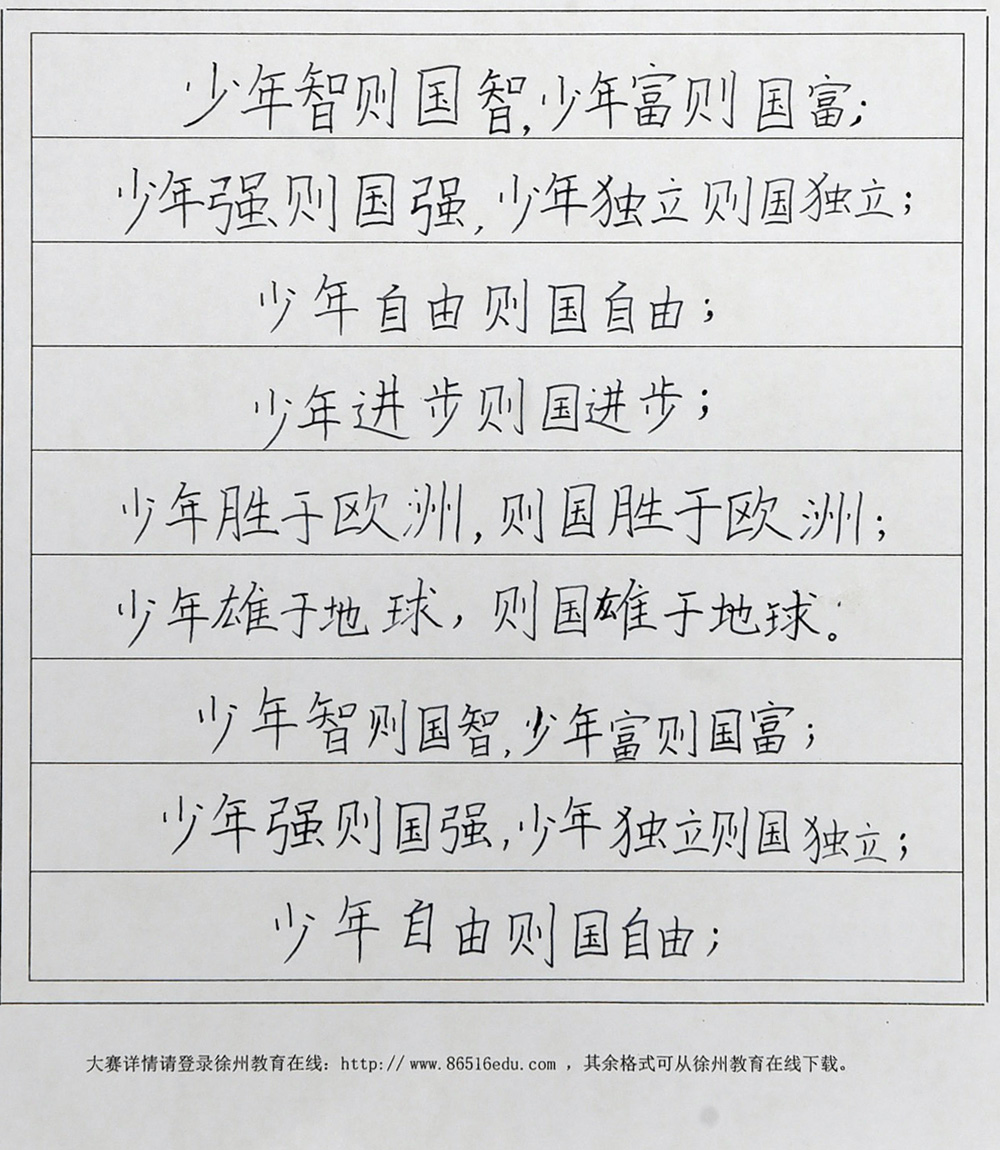 少年智则国智,少年富则国富;
少年强则国强,少年独立则国独立;
少年自由则国自由;
少年进步则国进步;
少年胜于欧洲,则国胜于欧洲;
少年雄于地球,则国雄于地球。
少年智则国智,少年富则国富;
少年强则国强,少年独立则国独立;
少年自由则国自由;
大赛详情请登录徐州教育在线：http://www.86516edu.com ，其余格式可从徐州教育在线下载。